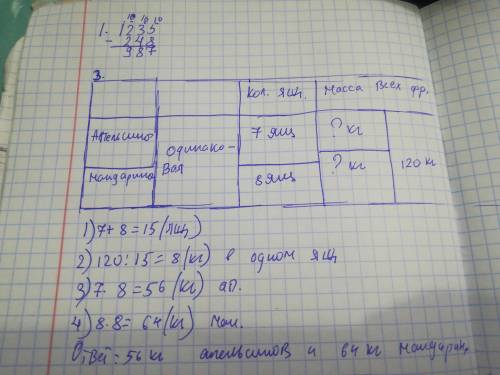 10 10 10
1. 1235
- 248
987
3.
Кол. ящ. Масса Всех фр.
Апельсино 7 ящ ? кг
одинако-
вая
Мандарино 8 ящ ? кг 120 кг
1) 7+8=15 (ящ)
2) 120:15=8 (кг) в одном ящ
3) 7·8=56 (кг) ап.
4) 8·8=64 (кг) ман.
Ответ: 56 кг апельсинов и 64 кг мандарин.